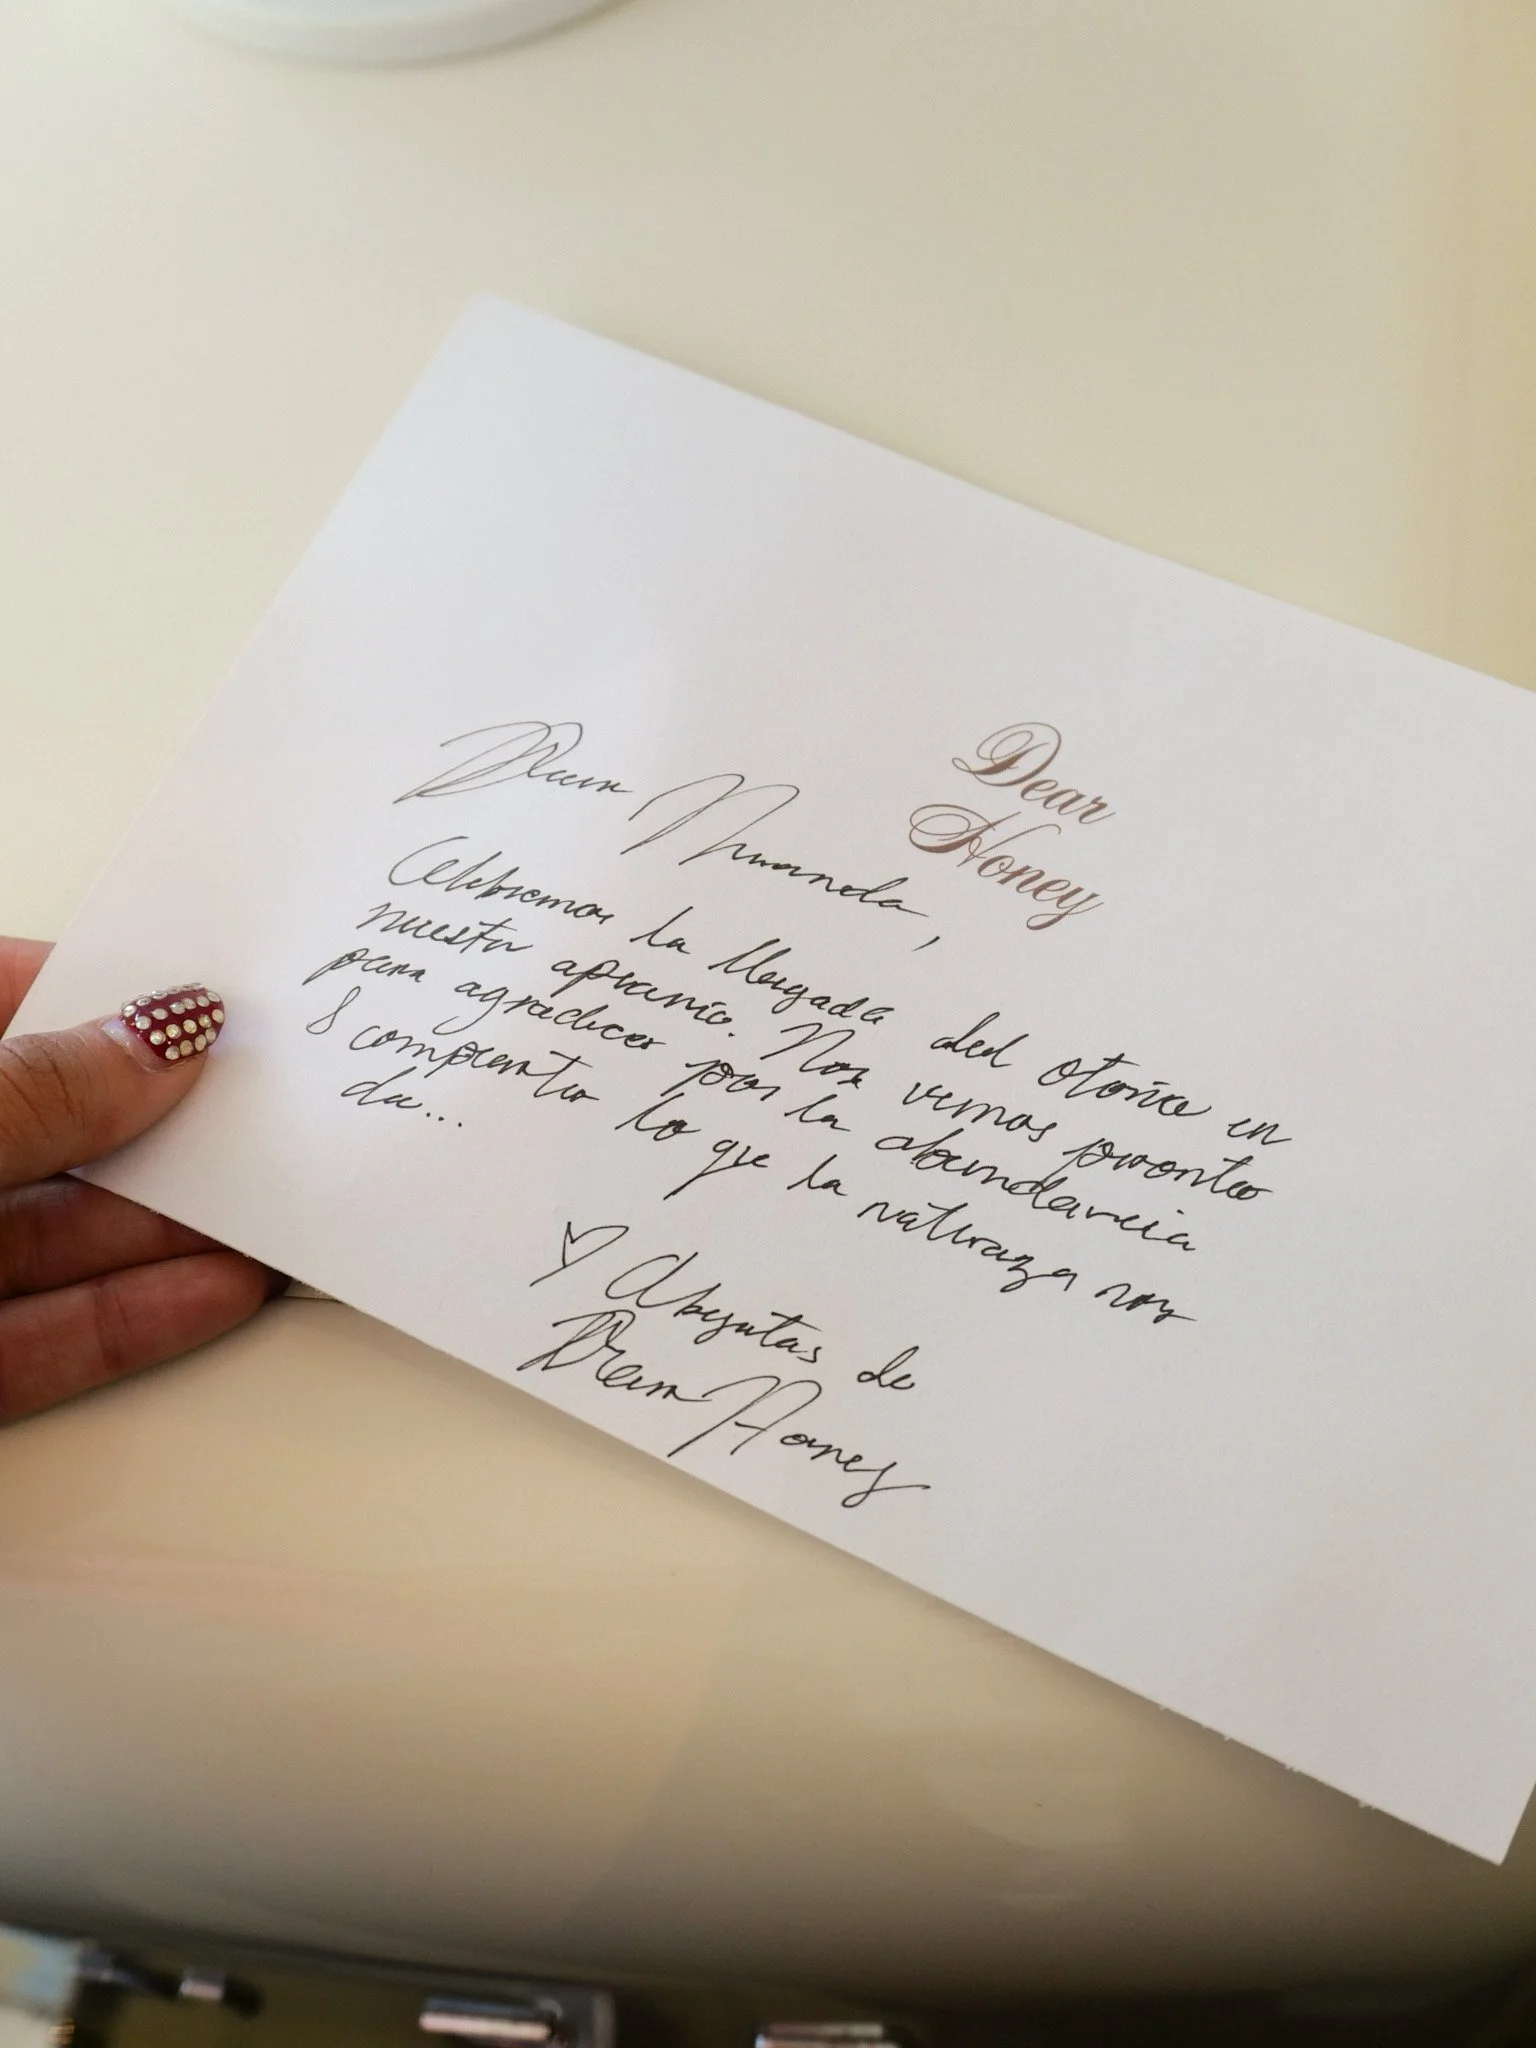 Dear
Honey
Dear Miranda,
Celebremos la llegada del otoño en
nuestro apiario. Nos vemos pronto
para agradecer por la abundancia
& compartir lo que la naturaleza nos
da...
♡ Abejitas de
Dear Honey